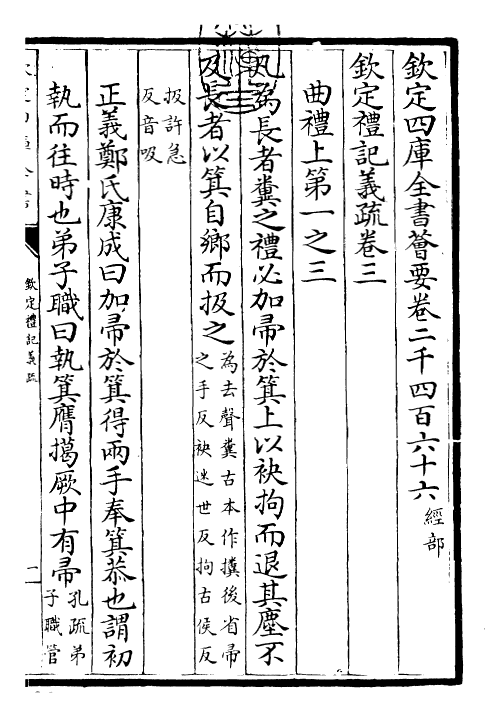 欽定四庫全書薈要卷二千四百六十六經部
欽定禮記義疏卷三
曲禮上第一之三
凡為長者糞之禮必加帚於箕上以袂拘而退其塵不
及長者以箕自鄉而扱之
為去聲糞古本作㩳後省帚
之手反袂迷世反拘古侯反
扱許急
反音吸
正義鄭氏康成曰加帚於箕得兩手奉箕恭也謂初
執而往時也弟子職曰執箕膺擖厥中有帚
孔疏弟
子職管
欽定禮記義疏
一